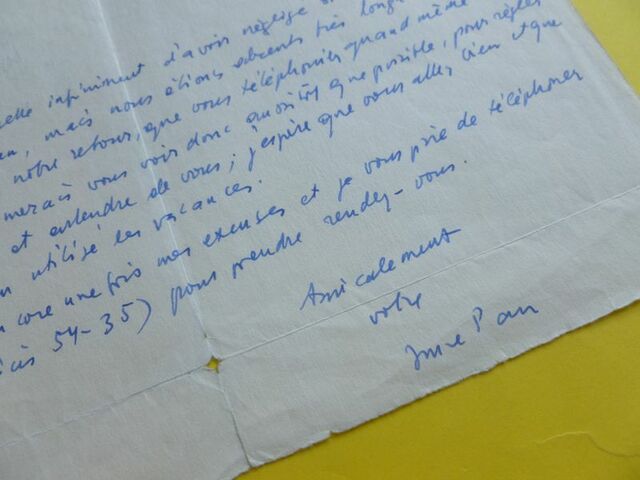 infiniment d'avoir négligé
, mais nous étions absents très long
notre retour, que vous téléphonier quand même
merais vous voir donc aussitôt que possible, pour régler
et entendre de vous; j'espère que vous allez bien et que
utilisé les vacances.
core une fois mes excuses et je vous prie de téléphoner
54-35) pour prendre rendez-vous.
Amicalement
votre